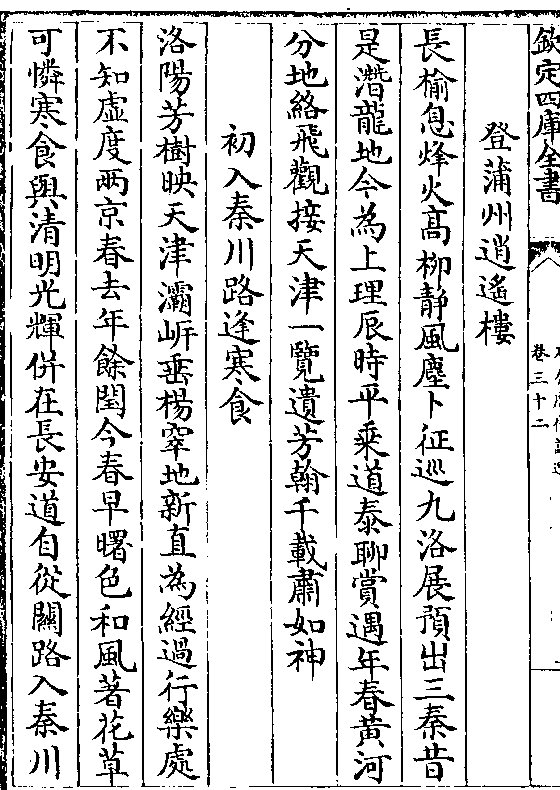 欽定四庫全書
卷三十二
登蒲州逍遙樓
長榆息烽火髙栁靜風塵卜征巡九洛展預出三秦昔
是潛龍地今為上理辰時平乗道泰聊賞遇年春黄河
分地絡飛觀接天津一覽遺芳翰千載肅如神
初入秦川路逢寒食
洛陽芳樹映天津灞岍垂楊窣地新直為經過行樂處
不知虛度兩京春去年餘閏今春早曙色和風著花草
可憐寒食與清明光輝併在長安道自從關路入秦川